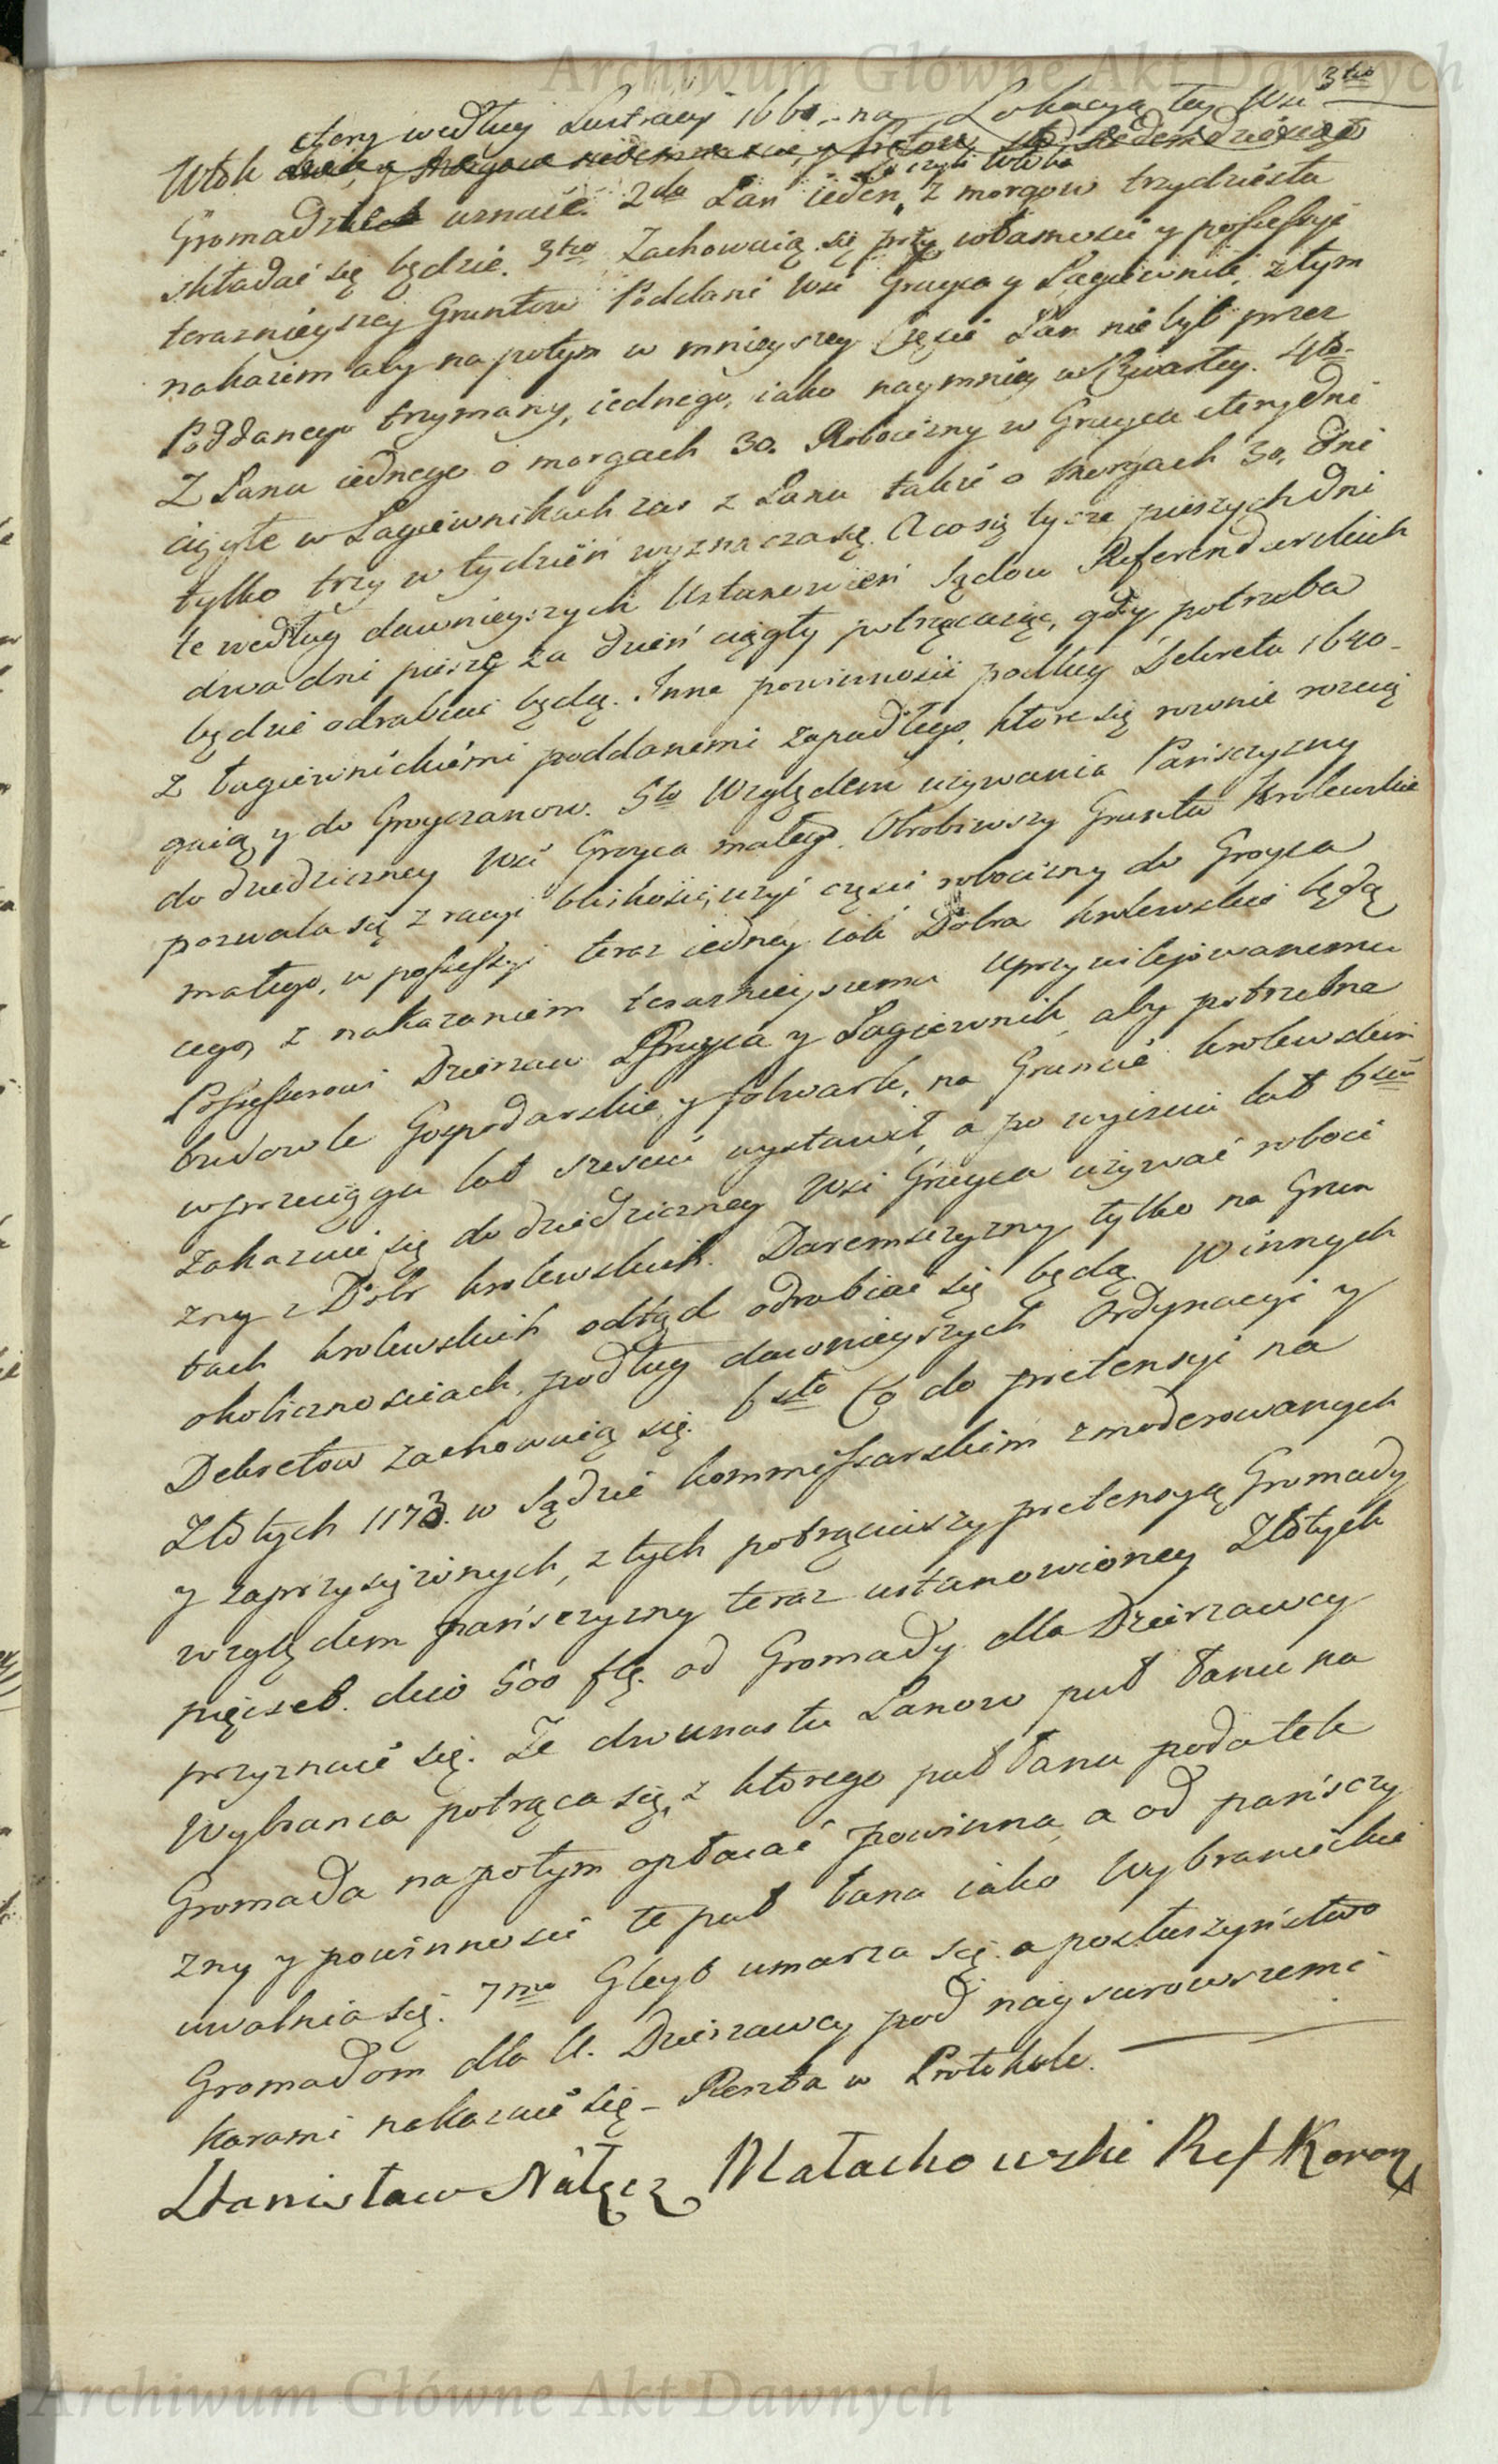 Archiwum Główne Akt Dawnych
3tio
cztery według Lustracyi 1661. na Lokacyą tey Wsi
Włok
Gromadzie uznaie. 2do Łan ieden, czyli Włoka z morgow trzydziestu
składać się będzie. 3tio Zachowuią się przy własnosci y possessyi
teraznieyszey Gruntow Poddani Wsi Grayca y Łagiewnik, z tym
nakazem aby napotym w mnieyszey Częsci Łan nie był przez
Poddanego trzymany, iednego, iako naymniey w Kwartey. 4to
Z Łanu iednego o morgach 30. Robocizny w Graycu cztery Dni
ciągłe w Łagiewnikach zas z Łanu także o Morgach 30. dni
tylko trzy w tydzień wyznacza się. A co się tycze pieszych Dni
te według dawnieyszych Ustanowień Sądow Referendarskich
dwa dni piesze za dzień ciągły potrącaiąc, gdy potrzeba
będzie odrabiać będą. Inne powinnosci podług Dekretu 1640
z Łagiewnickiemi poddanemi zapadłego, ktore się rownie rozcią
gaią y do Grayczanow. 5to Względem używania Pańszczyzny
do dziedziczney Wsi Grayca małego. Obrobiwszy Grunta Krolewskie
pozwala się z racyi bliskości, użyć części robocizny do Grayca
małego, w possessyi teraz iedney iak Dobra krolewskie będą
cego, z nakazaniem teraznieyszemu uprzywileiowanemu
Possessorowi Dzierzaw Grayca y Łagiewnik, aby potrzebne
budowle Gospodarskie y folwark, na Gruncie krolewskim
wprzeciągu lat szesciu wystawił, a po wyisciu lat 6ciu
zakazuie się do dziedziczney Wsi Grayca używać roboci
zny z Dobr krolewskich. Daremszczyzny tylko na Grun
tach krolewskich odtąd odrabiać się będą. W innych
okolicznosciach, podług dawnieyszych Ordynacyi y
Dekretow zachowuią się. 6sto Co do pretensyi na
Złotych 1173. w Sądzie kommissarskim zmoderowanych
y zaprzysiężonych, z tych potrąciwszy pretensyą Gromady
względem pańszczyzny teraz ustanowioney Złotych
pięcset. dico 500 flę. od Gromady dla Dzierzawcy
przyznaie się. Ze dwunastu Łanow puł łanu na
Wybranca potrąca się, z ktorego puł łanu podatek
Gromada napotym opłacać powinna, a od pańszczy
zny y powinnosci te puł łana iako Wybranieckie
uwalnia się. 7mo Gleyt umarza się. a posłuszyństwo
Gromadom dla U. Dzierzawcy pod naysurowszemi
karami nakazuie się – Reszta w Protokule.
Stanisław Nałęcz Małachowski Ref Koron
Archiwum Główne Akt Dawnych